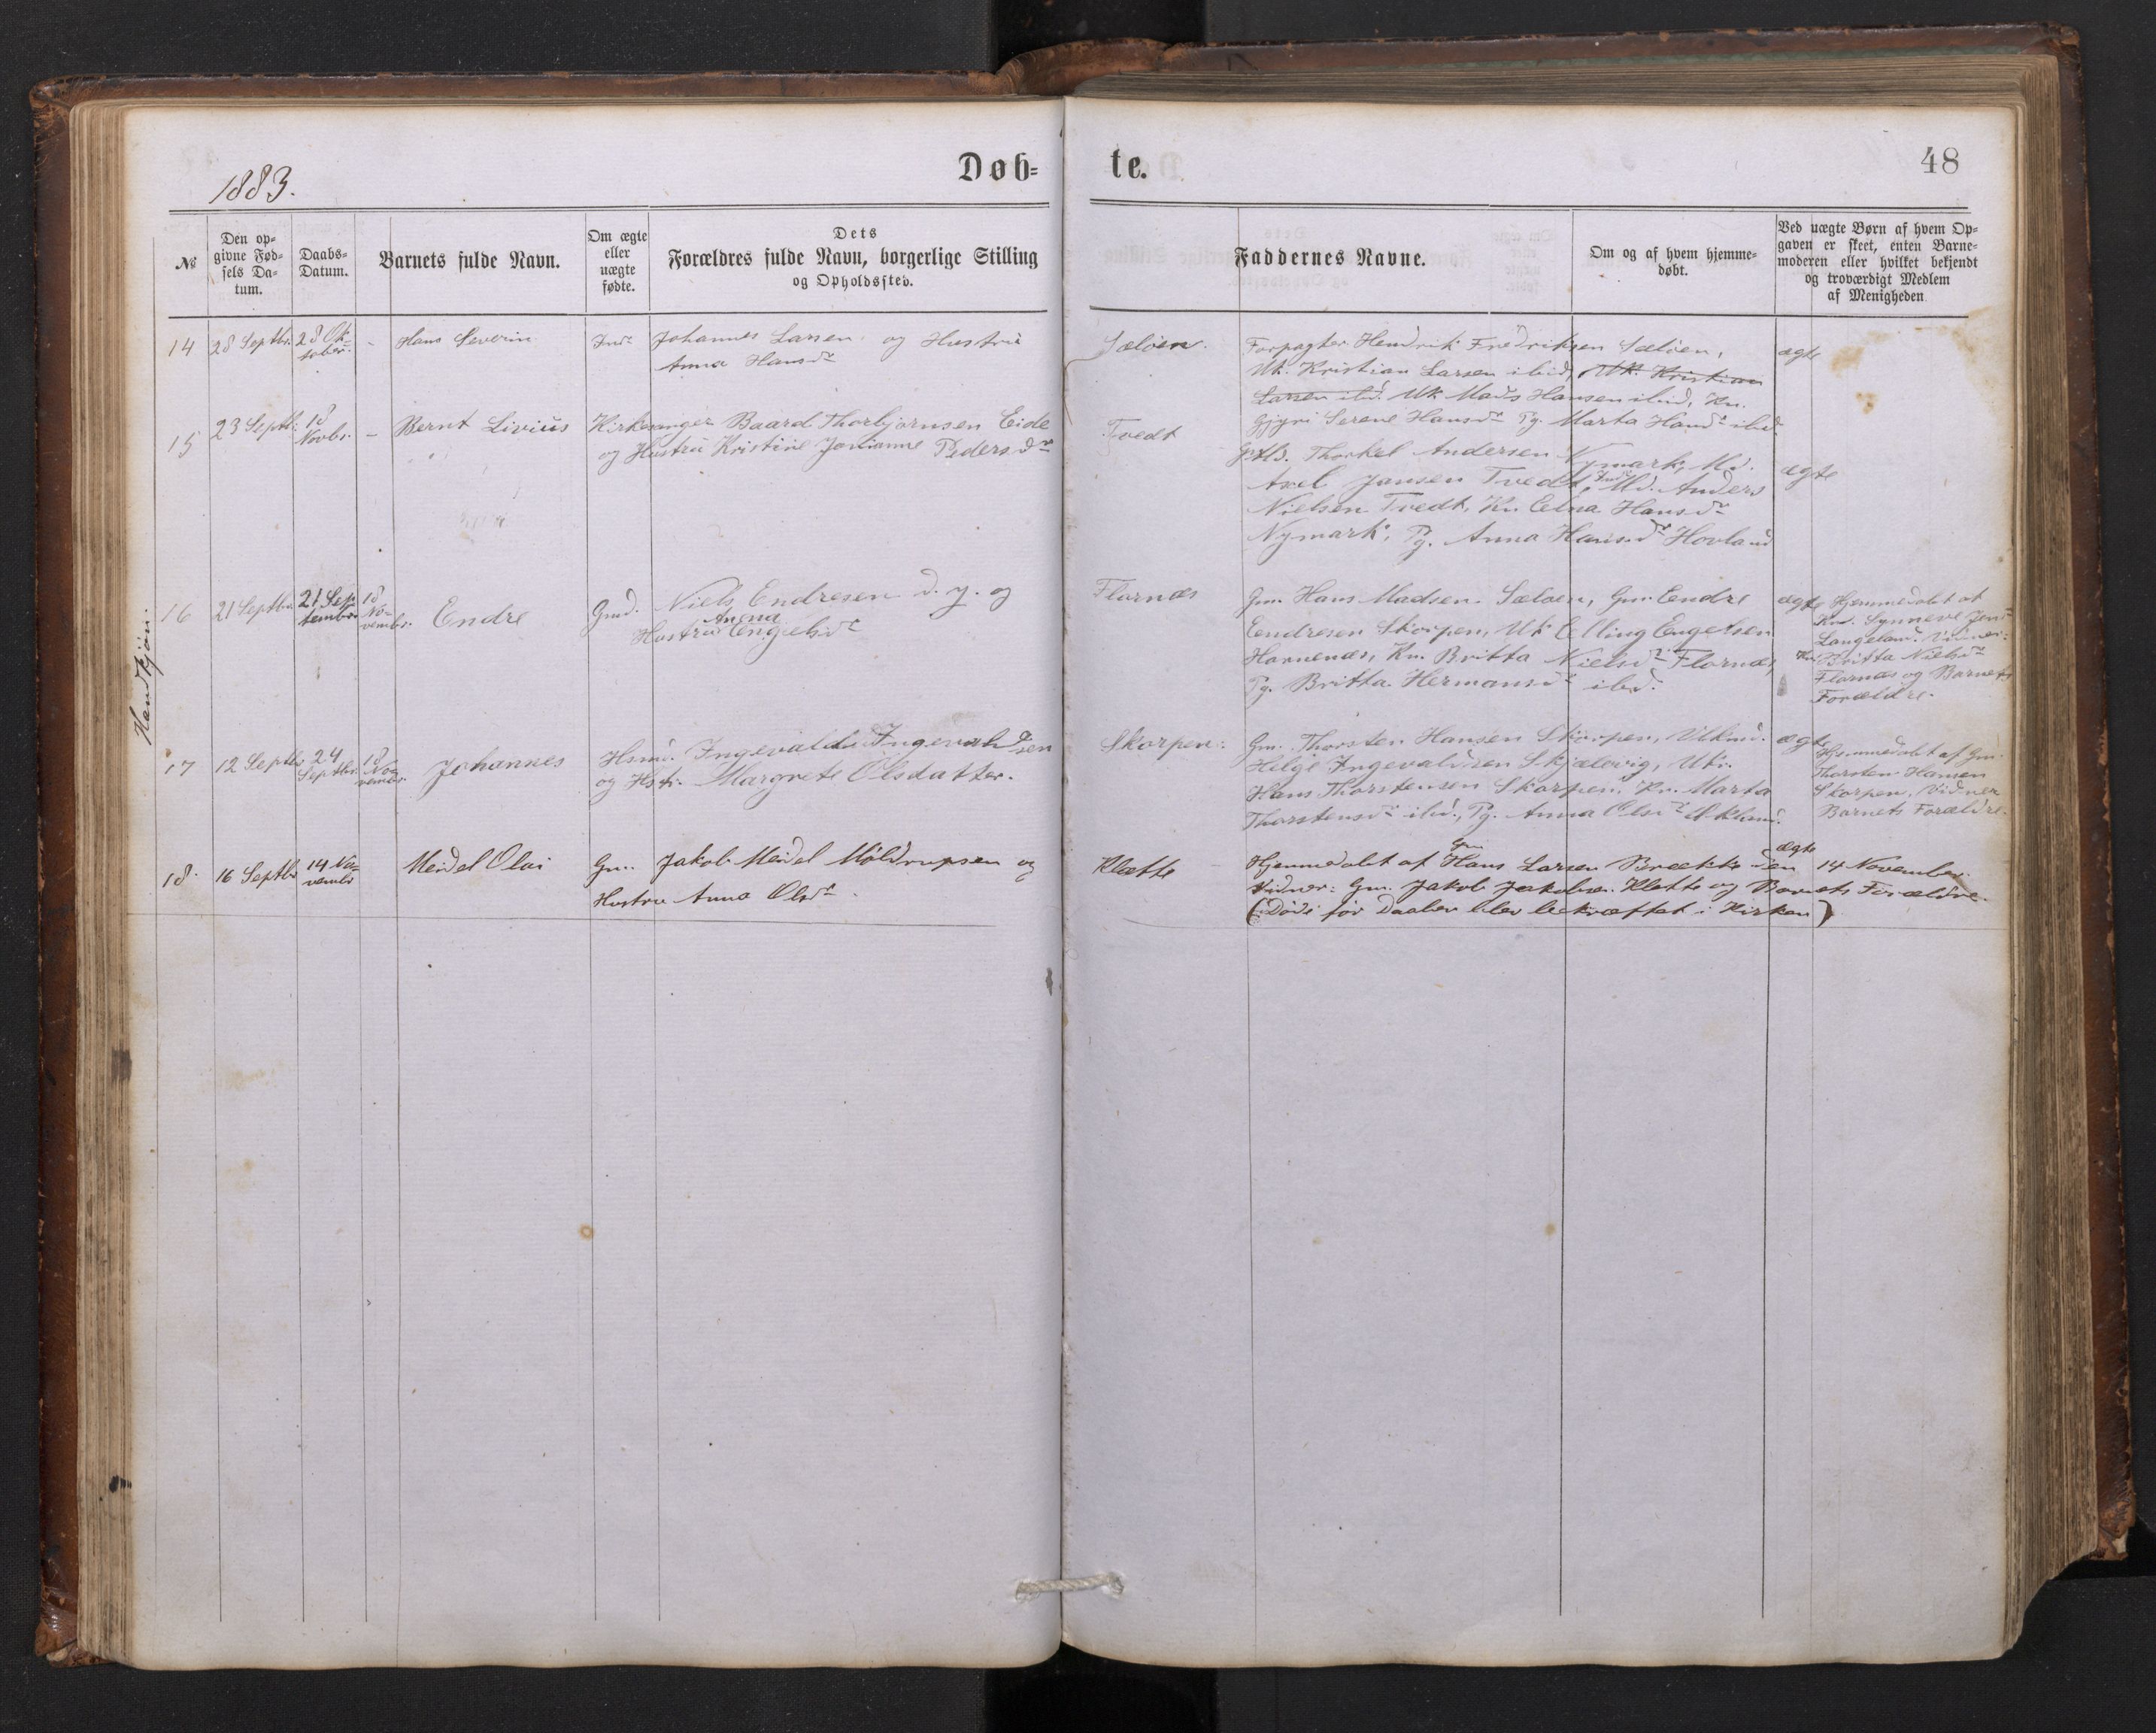 1883.
Døb=
te.
48
№
Den op=
givne Fød=
sels Da=
tum.
Daabs=
Datum.
Barnets fulde Navn.
Om ægte
eller
uægte
fødte.
Dets
Forældres fulde Navn, borgerlige Stilling
og Opholdssted.
Faddernes Navne.
Om og af hvem hjemme=
døbt.
Ved uægte Børn af hvem Op=
gaven er skeet, enten Barne=
moderen eller hvilket bekjendt
og troværdigt Medlem
af Menigheden
Handkjøn.
14 28 Septbr. 28 Ok=
tober. - Hans Severin Ind. Johannes Larsen og Hustru
Anna Hansdr
Sæløen.
Forpagter Hendrik Fredriksen Sæløen, ægte
Uk. Kristian Larsen ibid, Uk. Kristian
Larsen ibd. Uk Mads Hansen ibid, Kn.
Serene Hansdr Pg. Marta Hansdr ibd.
15 23 Septb: 18
Novbr. - Bernt Livius Kirkesanger Baard Thorbjørnsen Eide
og Hustru Kristine Janianne Pedersdr
Tvedt
Thorkel Andersen Nymark, Ud. ægte
Axel Jansen Tvedt, Ind. Ud. Anders
Nielsen Tvedt, Kn. Elna Hansdr
Nymark, Pg. Anna Hansdr Hovland
16 21 Septbr 21 Sep
tember. 18
No-
vembr. Endre Gmd. Niels Endresen d. y. og
Hustru Anna Engelsdr
Flornæs
Gm. Hans Madsen Sæløen, Gm. Endre ægte
Endresen Skorpen, Uk Elling Engelsen
Harnenæs, Kn. Britta Nielsdr Flornæs,
Pg. Britta Hermansdr ibd.
Hjemmedøbt af
Kn. Synneve Jensdr
Langeland. Vidner:
Kn. Britta Nielsdr
Flornæs og Barnets
Forældre.
17 12 Septbr 24
Septbr. 18
No-
vembr. Johannes Hsmd. Ingevald Ingevaldsen
og Hstr. Margrete Olsdatter.
Skorpen.
Gm. Thorsten Hansen Skorpen, Ukmd. ægte
Helge Ingevaldsen Skjælevig, Uk.
Hans Thorstensen Skorpen, Kn. Marta
Thorstensdr ibd., Pg. Anna Olsdr
Hjemmedøbt af Gm.
Thorsten Hansen
Skorpen. Vidner
Barnets Forældre.
18. 16 Septbr 14 No-
vembr Meidel Olai Gm. Jakob Meidel Møldrupsen og
Hustru Anna Olsdr.
Klætte
Hjemmedøbt af Gm Hans Larsen Brække den 14 November. ægte
Vidner: Gm. Jakob Jakobsen Klætte og Barnets Forældre.
(Døde før Daaben blev bekræftet i Kirken)